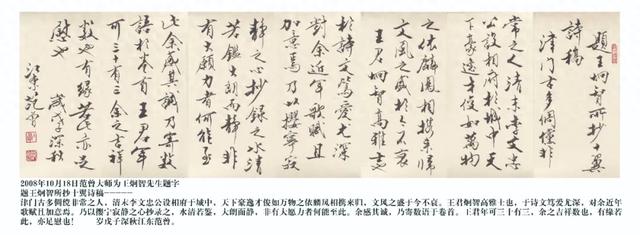 題王炯智所抄十翼
詩稿
津门古多倜儻非
常之人清末李文忠
公設相府於城中天
下豪逸才俊如萬物
之依麟凤相携来归
文风之盛於今不衰
王君炯智高雅士也
於詩文笃爱尤深
对余近年歌赋且
加意焉乃以攖寧寂
静之心抄录之水清
若鉴大朗而静非
有大願力者何能至
此余感其诚乃寄数
語於卷首王君年
可三十有三余之吉祥
数也有缘若此亦足
慰也 岁戊子深秋
江东范曾
2008年10月18日范曾大师为王炯智先生题字
题王炯智所抄十翼诗稿-----
津门古多倜傥非常之人，清末李文忠公设相府于城中，天下豪逸才俊如万物之依麟凤相携来归，文风之盛于今不衰。王君炯智高雅士也，于诗文笃爱尤深，对余近年
歌赋且加意焉。乃以撄宁寂静之心抄录之，水清若鉴，大朗而静，非有大愿力者何能至此。余感其诚，乃寄数语于卷首。王君年可三十有三，余之吉祥数也，有缘若
此，亦足慰也！ 岁戊子深秋江东范曾。